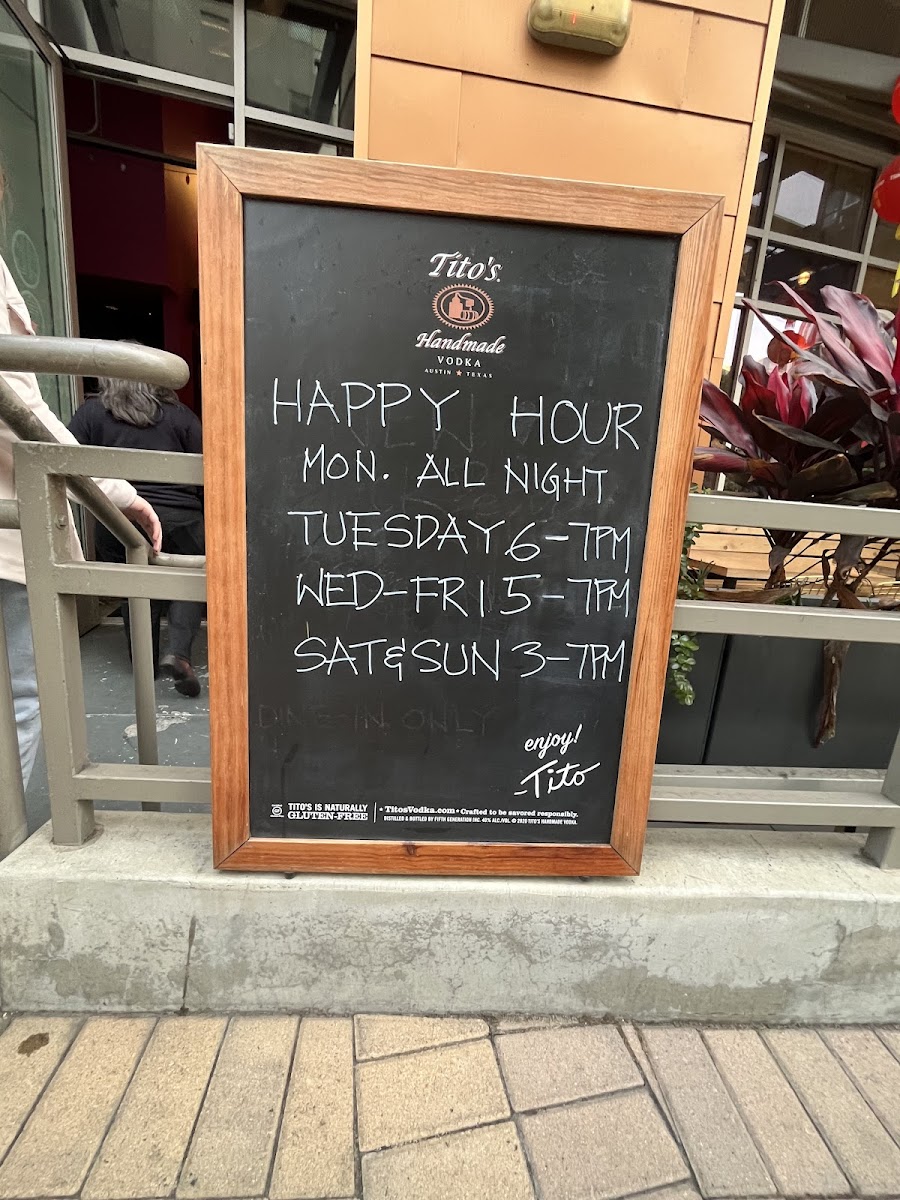 Tito's
Handmade
VODKA
AUSTIN ★ TEXAS
HAPPY HOUR
MON. ALL NIGHT
TUESDAY 6-7PM
WED-FRI 5-7PM
SAT & SUN 3-7PM
DINE-IN ONLY
enjoy!
-Tito
TITO'S IS NATURALLY
GLUTEN-FREE
• TitosVodka.com • Crafted to be savored responsibly.
DISTILLED & BOTTLED BY FIFTH GENERATION INC. 40% ALC./VOL. © 2020 TITO'S HANDMADE VODKA.